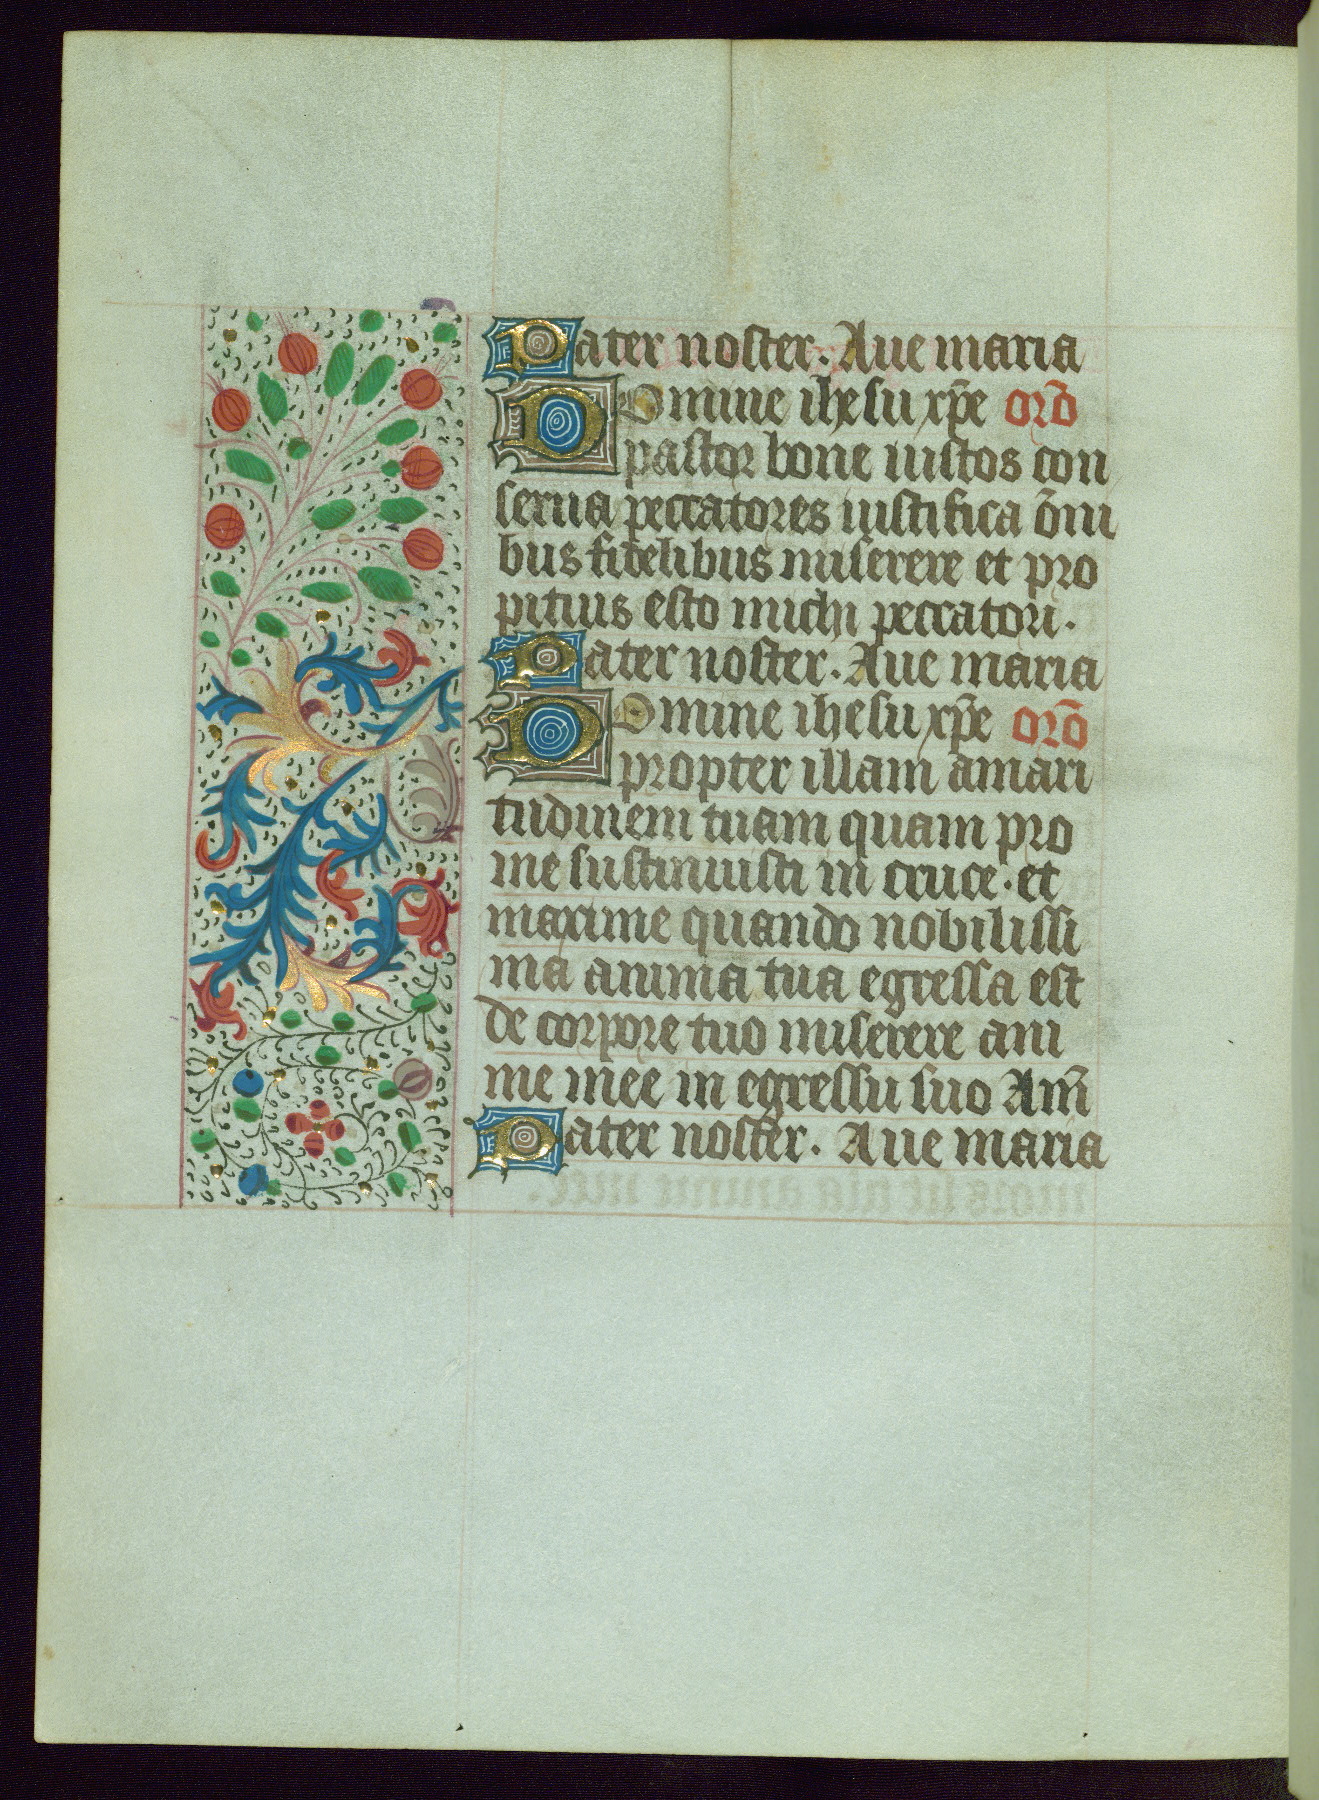 Pater noster. Aue maria
Domine ihesu xp̄e orō
pastor bone iustos con
serua peccatores iustifica ōni
bus fidelibus miserere et pro
pitius esto michi peccatori.
Pater noster. Aue maria
Domine ihesu xp̄e orō
propter illam amari
tudinem tuam quam pro
me sustinuisti in cruce. et
maxime quando nobilissi
ma anima tua egressa est
de corpore tuo miserere ani
me mee in egressu suo Am̄
Pater noster. Aue maria